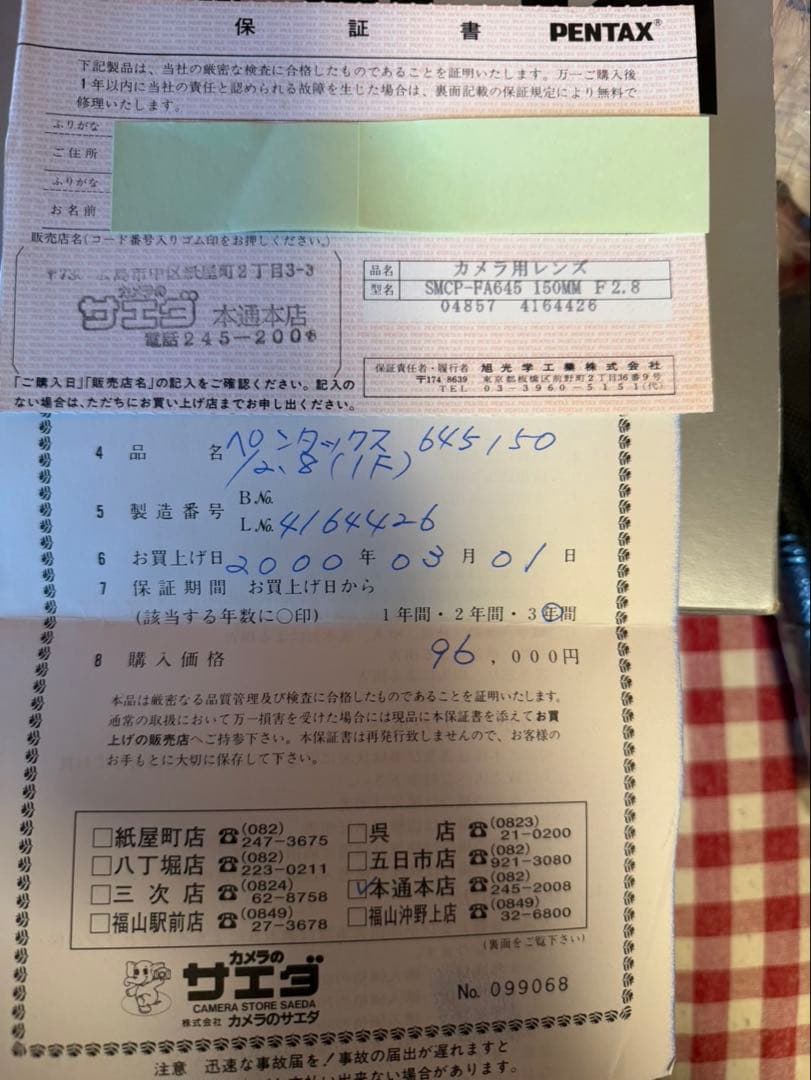 保証書 PENTAX®
下記製品は、当社の厳密な検査に合格したものであることを証明いたします。万一ご購入後
1年以内に当社の責任と認められる故障を生じた場合は、裏面記載の保証規定により無料で
修理いたします。
ふりがな
ご住所
ふりがな
お名前
販売店名(コード番号入りゴム印をお押しください。)
島市中区紙屋町2丁目3-3
カメラの
サエダ 本通本店
電話245-2008
品名 カメラ用レンズ
型名 SMCP-FA645 150MM F2.8
04857 4164426
保証責任者・履行者 旭光学工業株式会社
〒174-8639 東京都板橋区前野町2丁目36番9号
TEL 03-3960-5151(代)
「ご購入日」「販売店名」の記入をご確認ください。記入の
ない場合は、ただちにお買い上げ店までお申し出ください。
4 品名 ペンタックス 645 150
/2.8(IF)
5 製造番号 B.No.
L.No. 4164426
6 お買上げ日 2000年03月01日
7 保証期間 お買上げ日から
(該当する年数に○印) 1年間・2年間・3年間
8 購入価格 96,000円
本品は厳密なる品質管理及び検査に合格したものであることを証明いたします。
通常の取扱において万一損害を受けた場合には現品に本保証書を添えてお買
上げの販売店へご持参下さい。本保証書は再発行致しませんので、お客様の
お手もとに大切に保存して下さい。
□紙屋町店 ☎(082)247-3675 □呉店 ☎(0823)21-0200
□八丁堀店 ☎(082)223-0211 □五日市店 ☎(082)921-3080
□三次店 ☎(0824)62-8758 ☑本通本店 ☎(082)245-2008
□福山駅前店 ☎(0849)27-3678 □福山沖野上店 ☎(0849)32-6800
(裏面をご覧下さい)
カメラの
サエダ
CAMERA STORE SAEDA
株式会社 カメラのサエダ
No. 099068
注意 迅速な事故届を!事故の届出が遅れますと